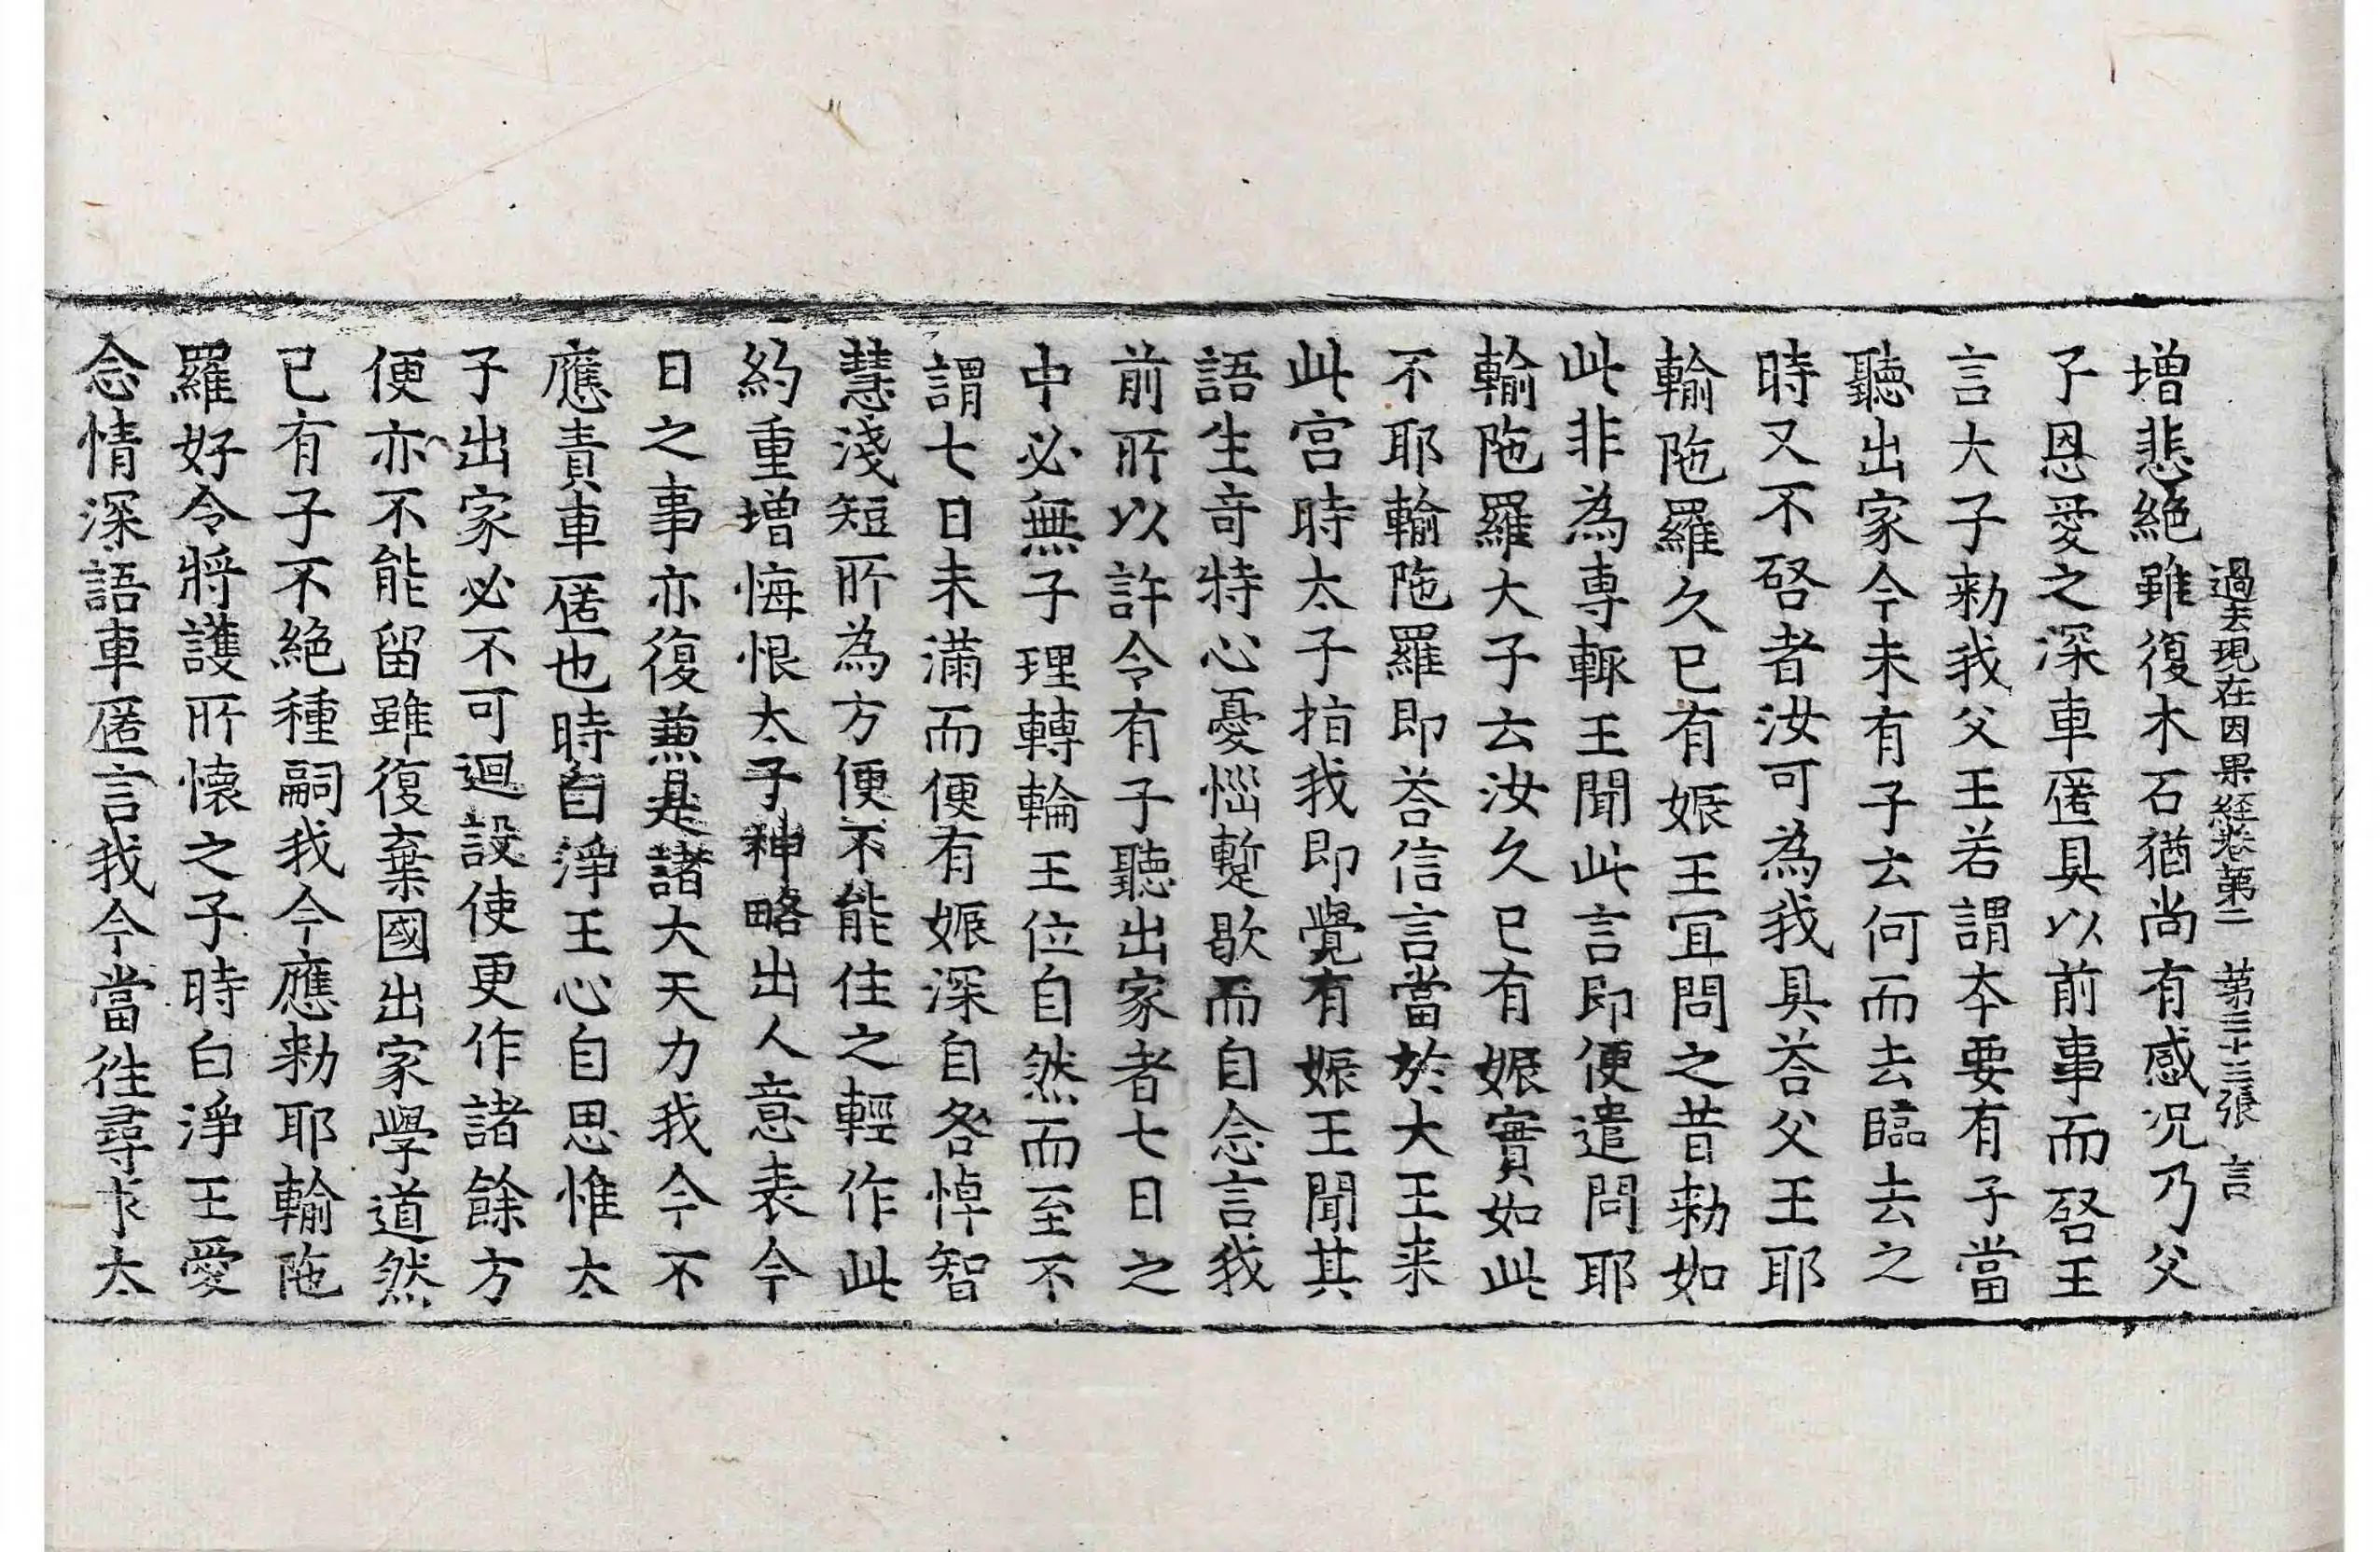 過去現在因果經卷第二　第三十三張　言
增悲絕雖復木石猶尚有感况乃父
子恩愛之深車匿具以前事而啓王
言大子勑我父王若謂夲要有子當
聽出家今未有子云何而去臨去之
時又不啓者汝可為我具荅父王耶
輸陁羅久已有娠王冝問之昔勑如
此非為専輙王聞此言即便遣問耶
輸陁羅大子云汝久已有娠實如此
不耶輸陁羅即荅信言當於大王来
此宮時太子指我即覺有娠王聞其
語生竒特心憂惱蹔歇而自念言我
前所以許令有子聽出家者七日之
中必無子理轉輪王位自然而至不
謂七日未滿而便有娠深自咎悼智
慧淺短所為方便不能住之輕作此
約重增悔恨太子神略出人意表今
日之事亦復兼是諸大天力我今不
應責車匿也時白淨王心自思惟太
子出家必不可迴設使更作諸餘方
便亦不能留雖復棄國出家學道然
已有子不絕種嗣我今應勑耶輸陁
羅好令將護所懷之子時白淨王愛
念情深語車匿言我今當徃尋求太